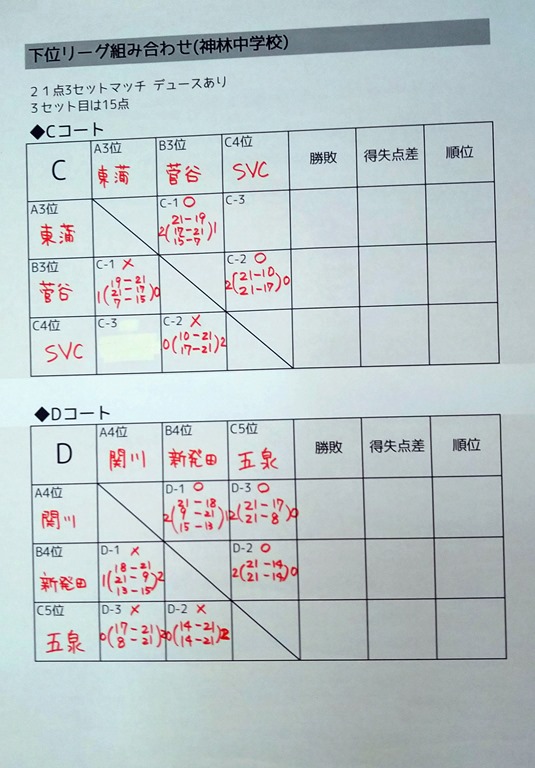 下位リーグ組み合わせ(神林中学校)
２１点3セットマッチ デュースあり
３セット目は15点
◆Cコート
C A3位 東蒲 B3位 菅谷 C4位 SVC 勝敗 得失点差 順位
A3位 東蒲 C-1 ○ 2(21-19 17-21 15-7)1 C-3
B3位 菅谷 C-1 × 1(19-21 21-17 7-15) C-2 ○ 2(21-10 21-17)0
C4位 SVC C-3 C-2 × 0(10-21 17-21)2
◆Dコート
D A4位 関川 B4位 新発田 C5位 五泉 勝敗 得失点差 順位
A4位 関川 D-1 ○ 2(21-18 9-21 15-13)1 D-3 ○ 2(21-17 21-8)0
B4位 新発田 D-1 × 1(18-21 21-9 13-15)2 D-2 ○ 2(21-14 21-14)0
C5位 五泉 D-3 × 0(17-21 8-21)2 D-2 × 0(14-21 14-21)2